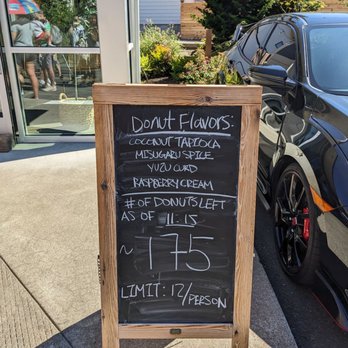 Donut Flavors:
COCONUT TAPIOCA
MISUGARU SPICE
YUZU CURD
RASPBERRY CREAM
# OF DONUTS LEFT
AS OF 11:15
~ 175
LIMIT: 12/PERSON